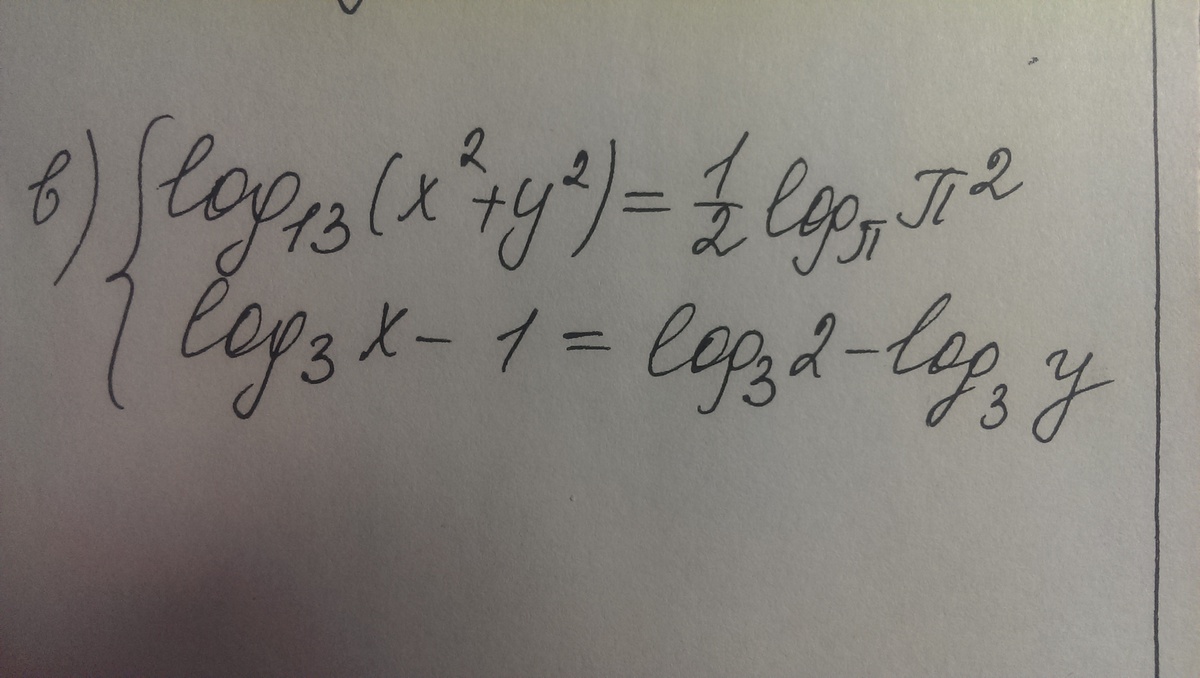 в) { log₁₃(x²+y²) = 1/2 log_π π²
log₃ x − 1 = log₃ 2 − log₃ y